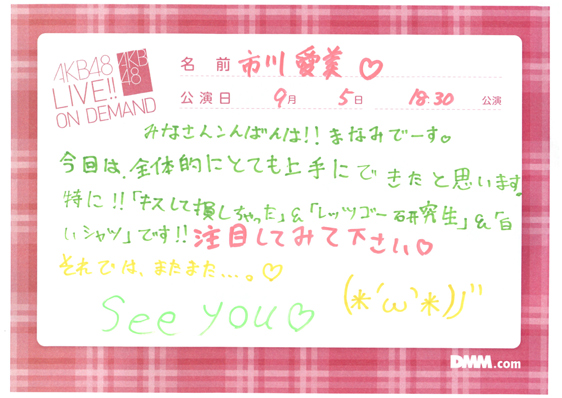 AKB48
LIVE!!
ON DEMAND
AKB
48
名前 市川愛美♡
公演日 9月 5日 18:30 公演
みなさんこんばんは!! まなみでーす♡
今回は、全体的にとても上手にできたと思います。
特に!!「キスして損しちゃった」&「レッツゴー研究生」&「白
いシャツ」です!! 注目してみて下さい♡
それでは、またまた…。♡
See you♡ (*´ω`*)ノ"
DMM.com